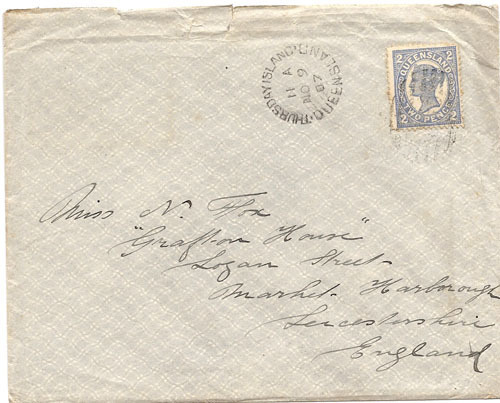 THURSDAY ISLAND QUEENSLAND
A
11
NO 9
07
2 QUEENSLAND 2
2 TWO PENCE 2
Miss N. Fox
"Grafton House"
Logan Street
Market Harborough
Leicestershire
England